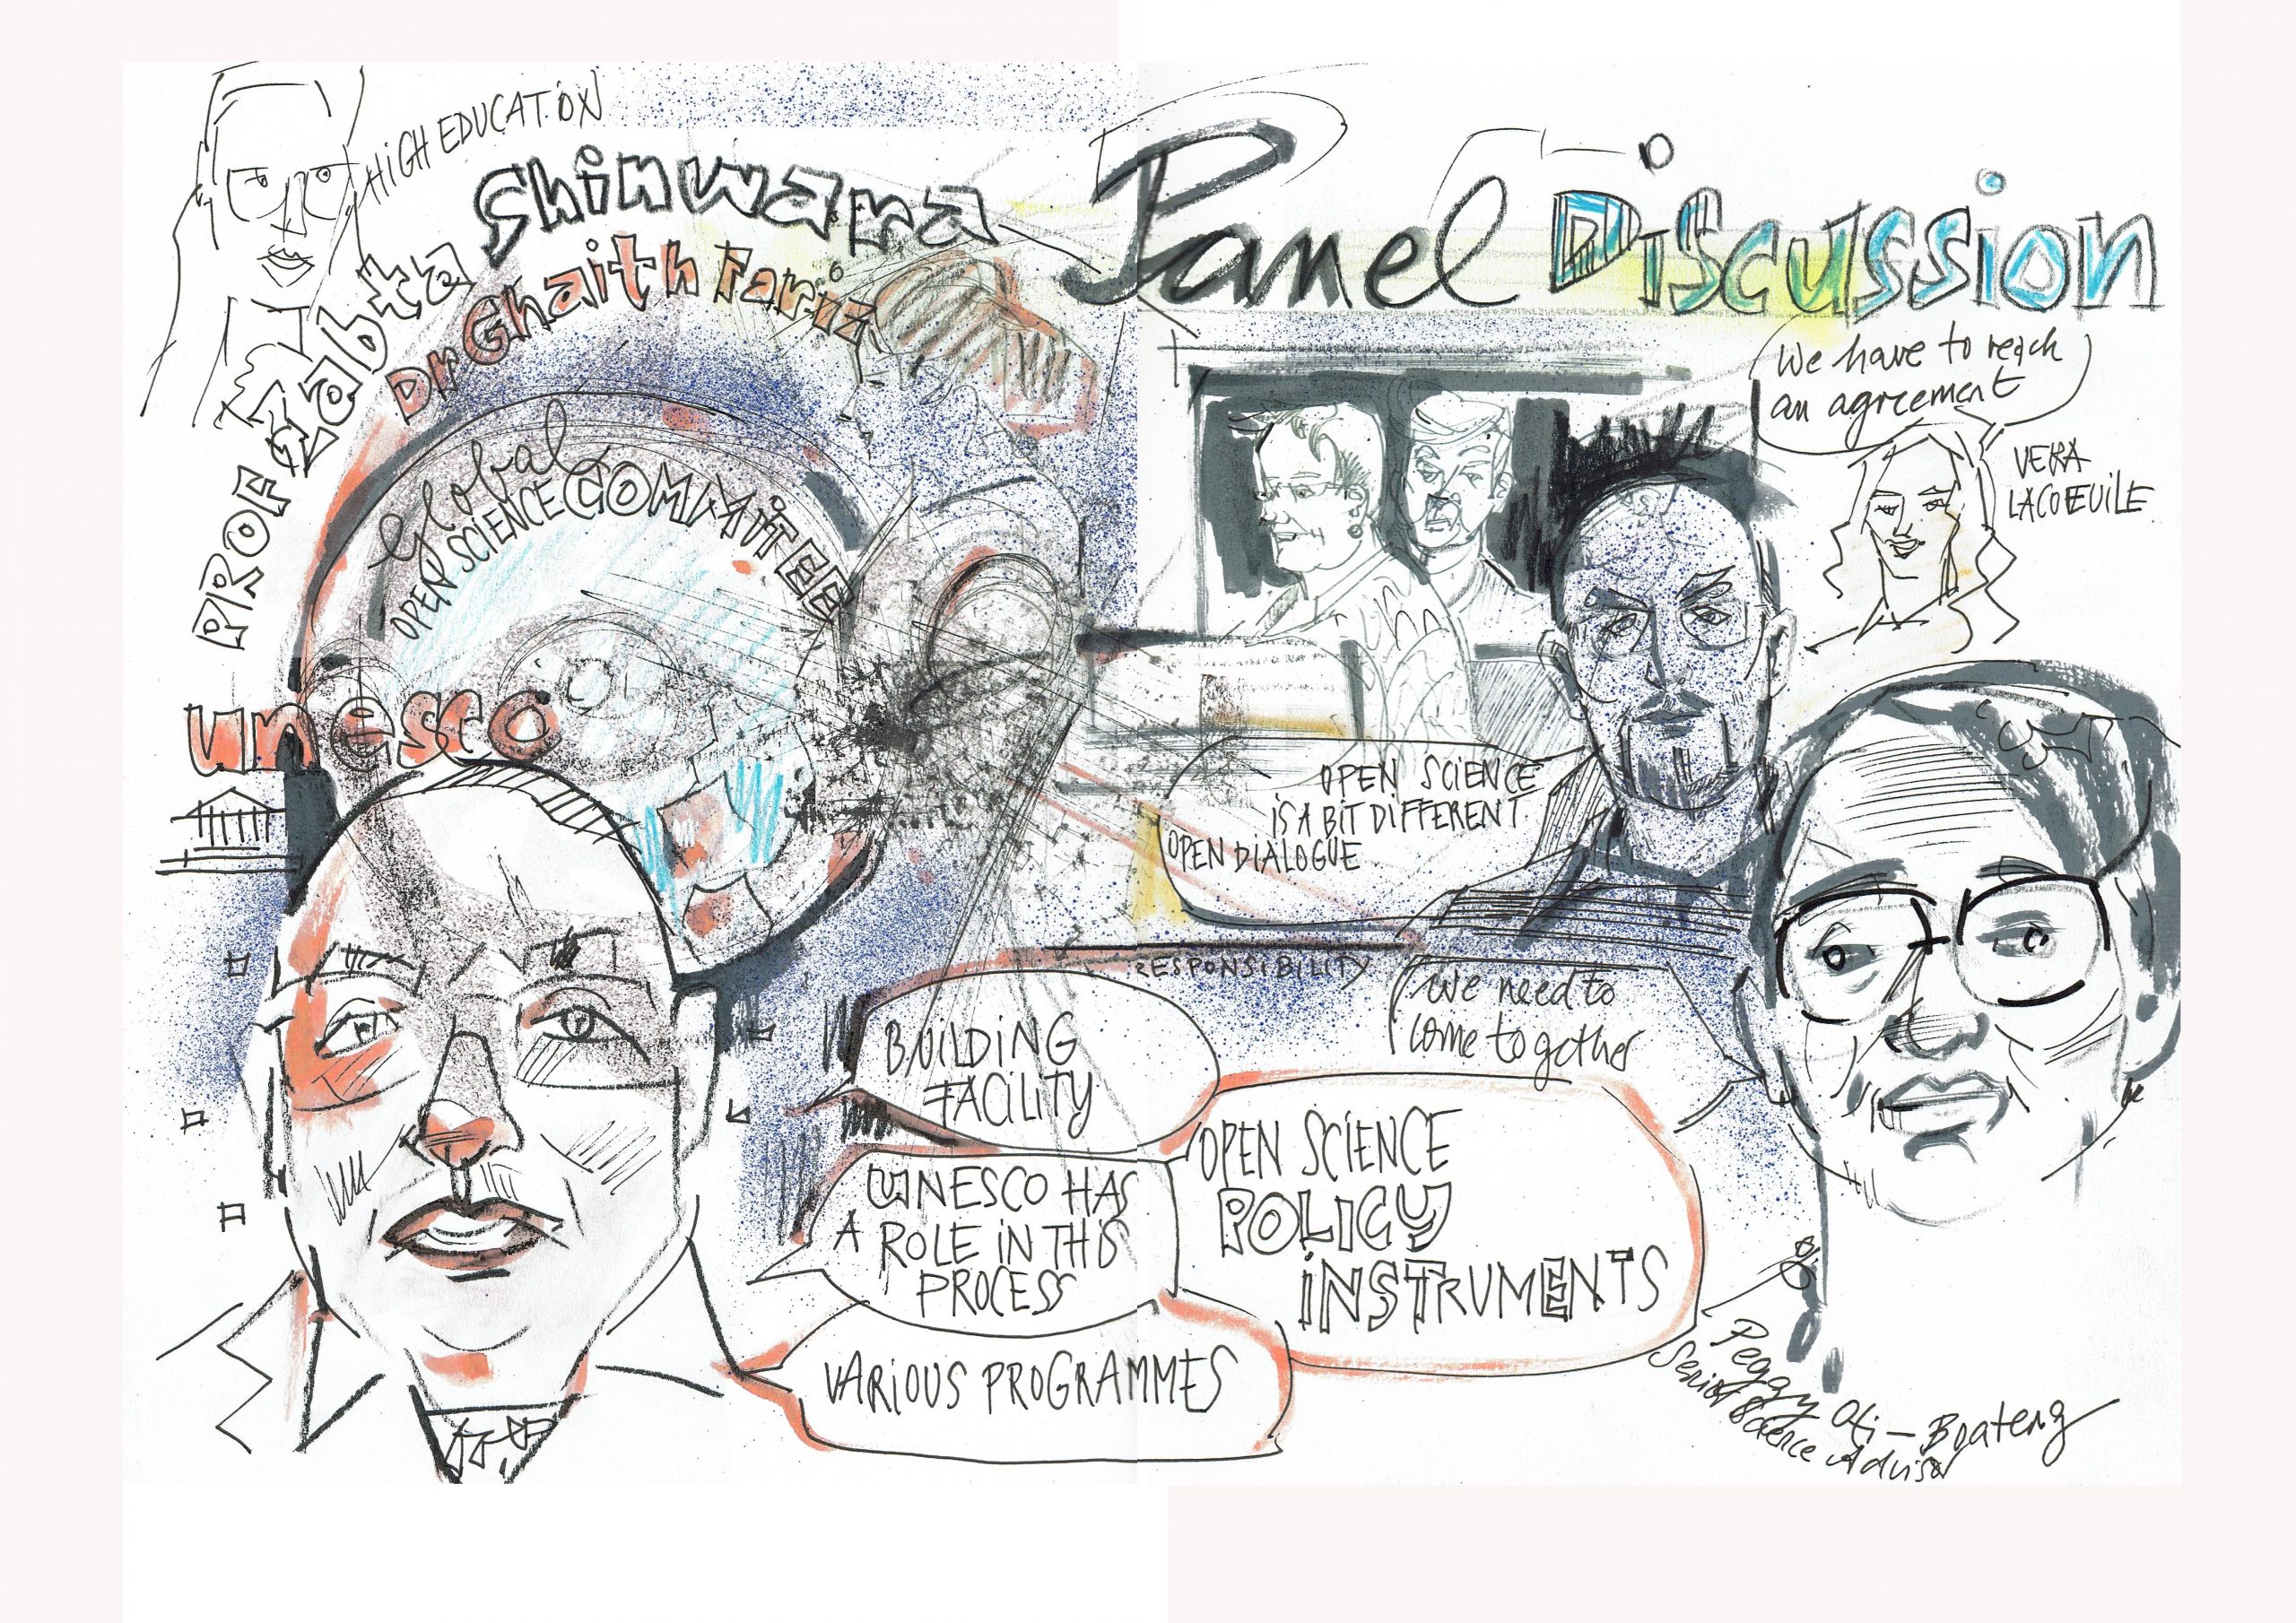 HIGH EDUCATION
PROF Zabta Shinwara
Dr Ghaith Fariz
Global
OPEN SCIENCE COMMITEE
unesco
Panel Discussion
We have to reach
an agreement
VERA
LACOEUILE
OPEN SCIENCE
IS A BIT DIFFERENT
OPEN DIALOGUE
RESPONSIBILITY
We need to
come together
BUILDING
FACILITY
UNESCO HAS
A ROLE IN THIS
PROCESS
VARIOUS PROGRAMMES
OPEN SCIENCE
POLICY
INSTRUMENTS
Peggy Oti-Boateng
Senior Science Advisor